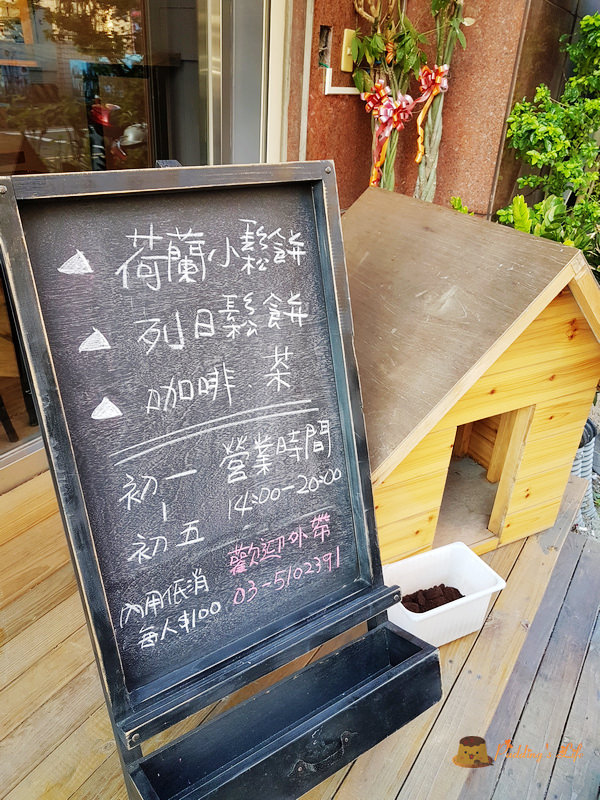 荷蘭小鬆餅
列日鬆餅
咖啡、茶
營業時間
初一
|
初五
14:00-20:00
歡迎外帶
03-5102391
內用低消
每人$100
Pudding's Life